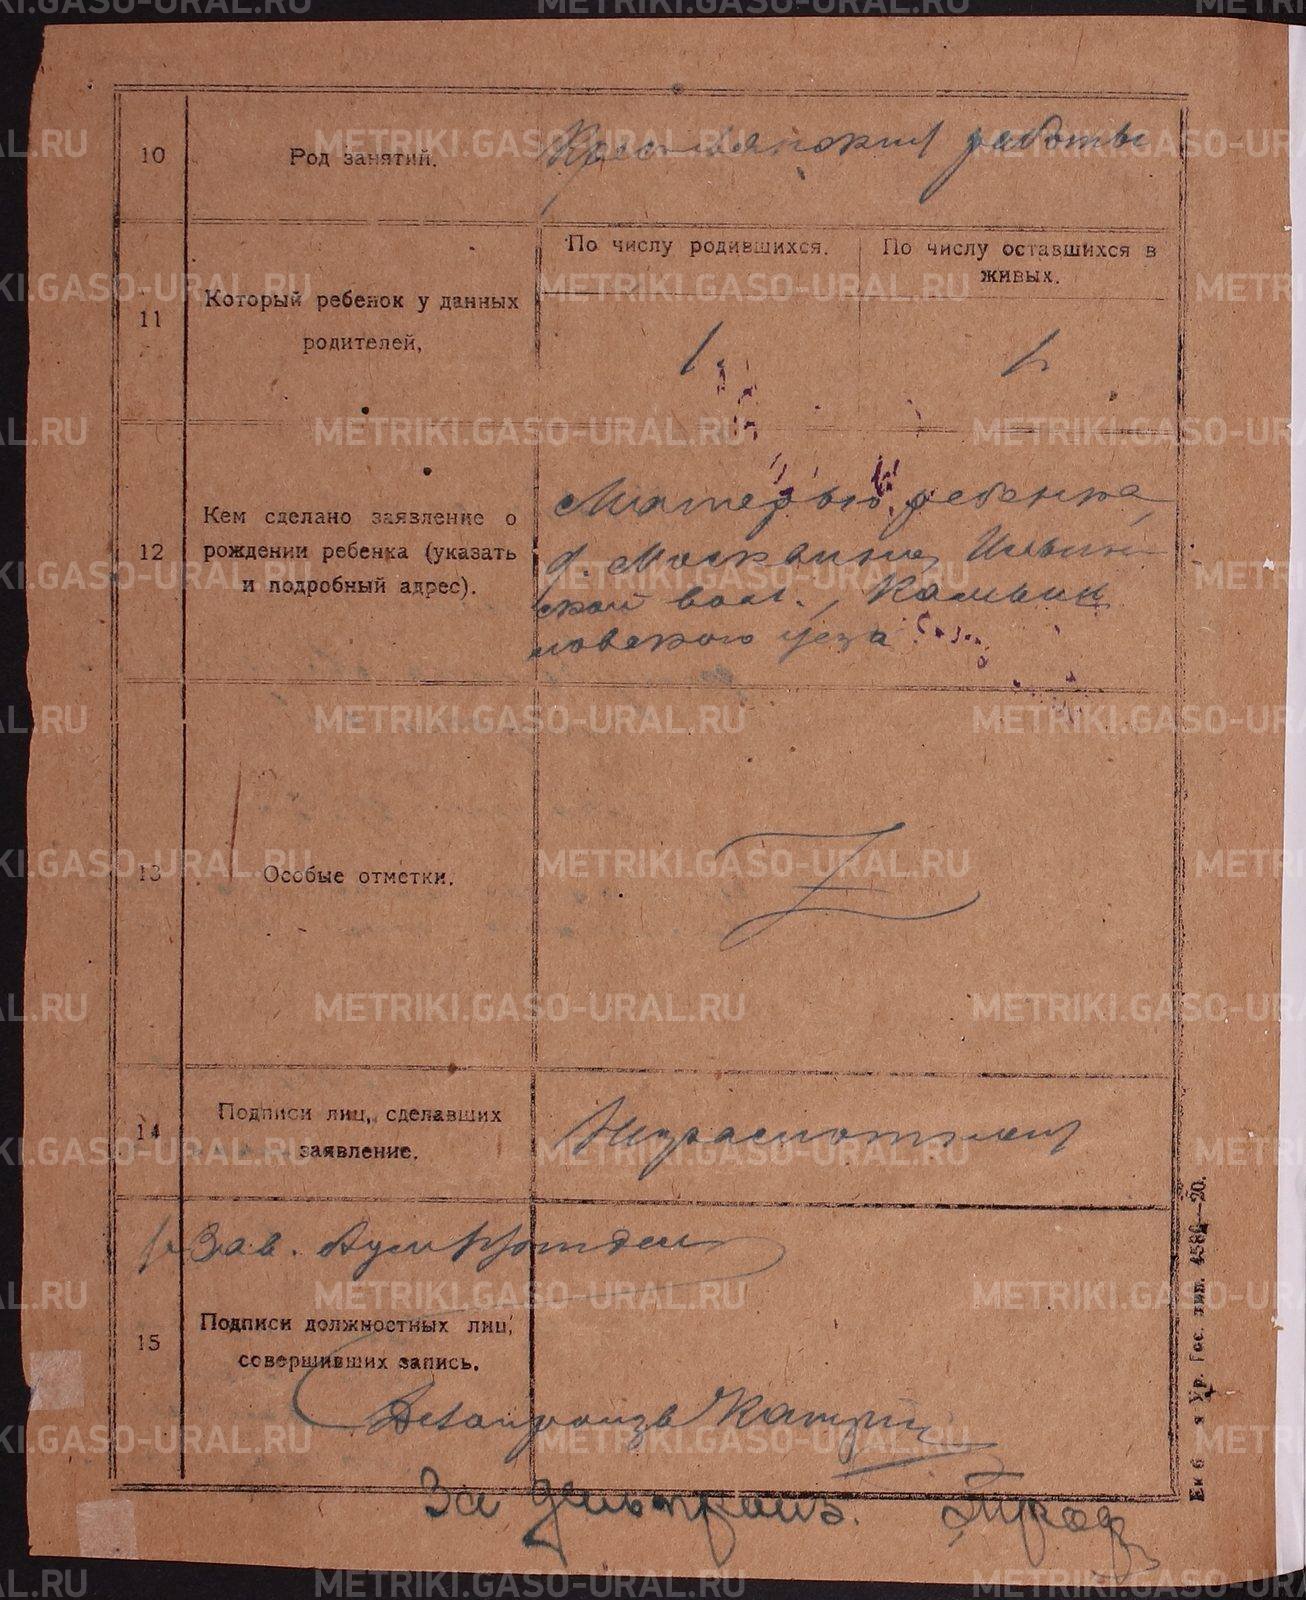 10
Род занятий.
Крестьянския работы
11
Который ребенок у данных
родителей,
По числу родившихся.
По числу оставшихся в
живых.
1.
1.
12
Кем сделано заявление о
рождении ребенка (указать
и подробный адрес).
Матерью ребенка,
д. Москвина, Ильин-
ской вол., Камыш
ловского уезда
13
Особые отметки.
Z
14
Подписи лиц, сделавших
заявление.
Неграмотная
Зав.
15
Подписи должностных лиц,
совершивших запись.
Делопроизв
За Делопроизв.
Ек б я Ур. Гос. тип. 4586—20.
METRIKI.GASO-URAL.RU